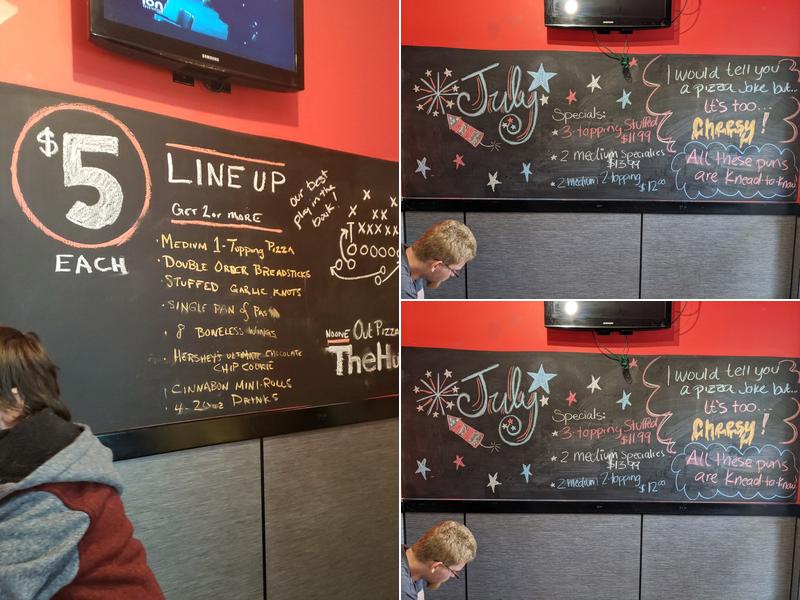 ion
SAMSUNG
$5
EACH
LINE UP
GET 2 or MORE
• MEDIUM 1-TOPPING PIZZA
• DOUBLE ORDER BREADSTICKS
• STUFFED GARLIC KNOTS
• SINGLE PAN of PASTA
• 8 BONELESS WINGS
• HERSHEY'S ULTIMATE CHOCOLATE
CHIP COOKIE
• CINNABON MINI-ROLLS
• 4-20oz DRINKS
our best
play in the
book!
NOONE Out Pizza
The Hu
SAMSUNG
July
Specials:
* 3-topping Stuffed
$11.99
* 2 medium Specialties
$13.99
* 2 medium 2-topping
$12.00
I would tell you
a pizza joke but...
It's too...
Cheesy!
All these puns
are Knead-to-Know
July
Specials:
* 3-topping Stuffed
$11.99
* 2 medium Specialties
$13.99
* 2 medium 2-topping
$12.00
I would tell you
a pizza joke but...
It's too...
Cheesy!
All these puns
are Knead-to-Know